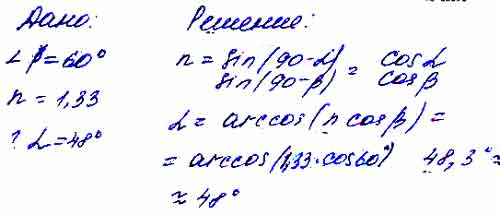 Дано:
∠β=60°
n=1,33
? L=48°
Решение:
n = sin(90-L) / sin(90-β) = cosL / cosβ
L = arccos(n cosβ) =
= arccos(1,33·cos60°) 48,3°≈
≈ 48°